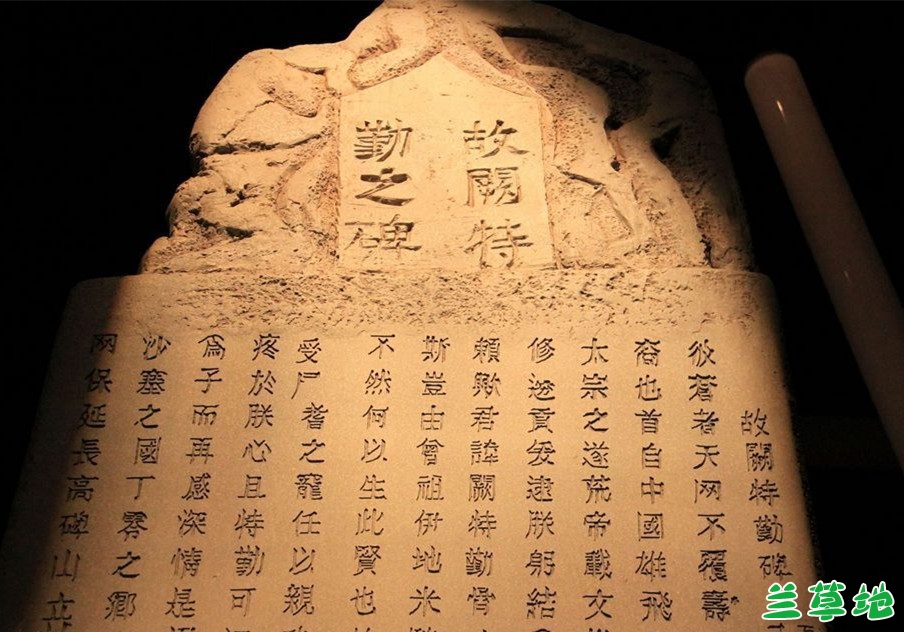 故闕特
勤之碑
故闕特勤碑
彼蒼者天网不覆燾
裔也首自中國雄飛
太宗之遂荒帝載文
修邊貢爰逮朕躬結
賴歟君諱闕特勤骨
斯豈由曾祖伊地米
不然何以生此賢也
受耆之寵任以親
疼於朕心且特勤可
爲子而再感深情是
沙塞之國丁零之鄉
网保延長高碑山立
兰草地